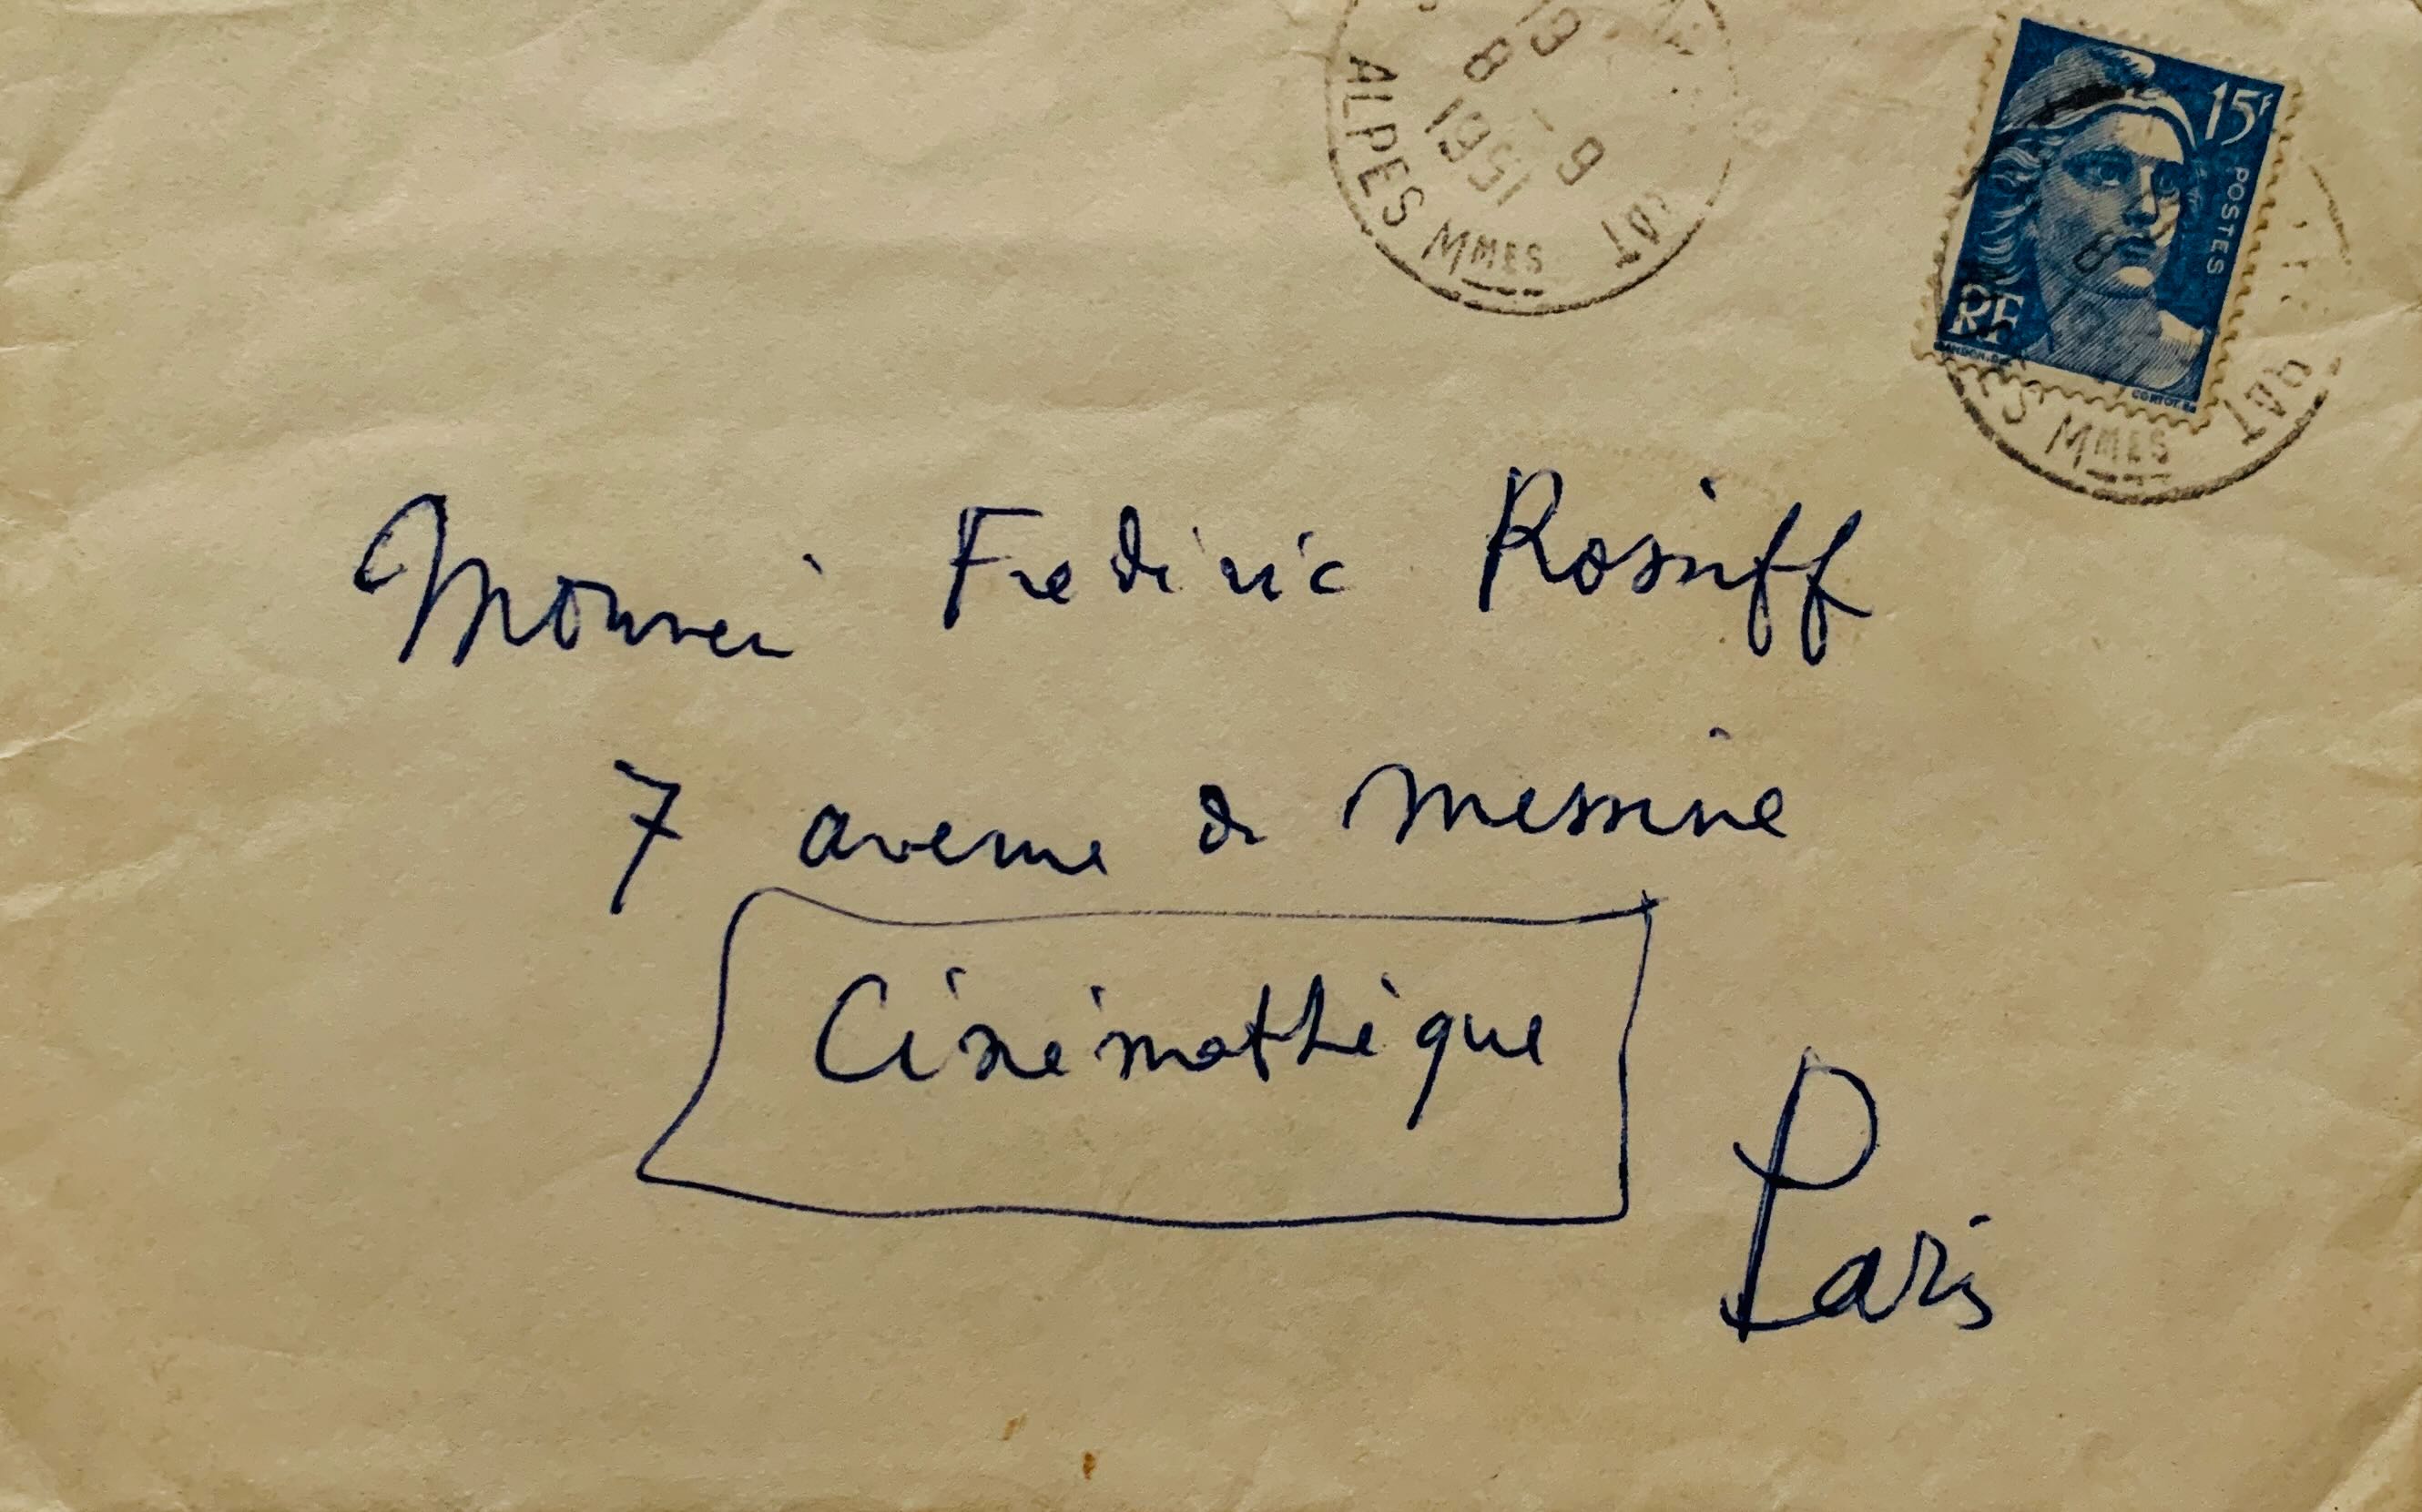 13
8 - 9
1951
ALPES MMES
15F
POSTES
RF
ES MMES
Monsieur Frédéric Rossif
7 avenue de Messine
Cinémathèque
Paris